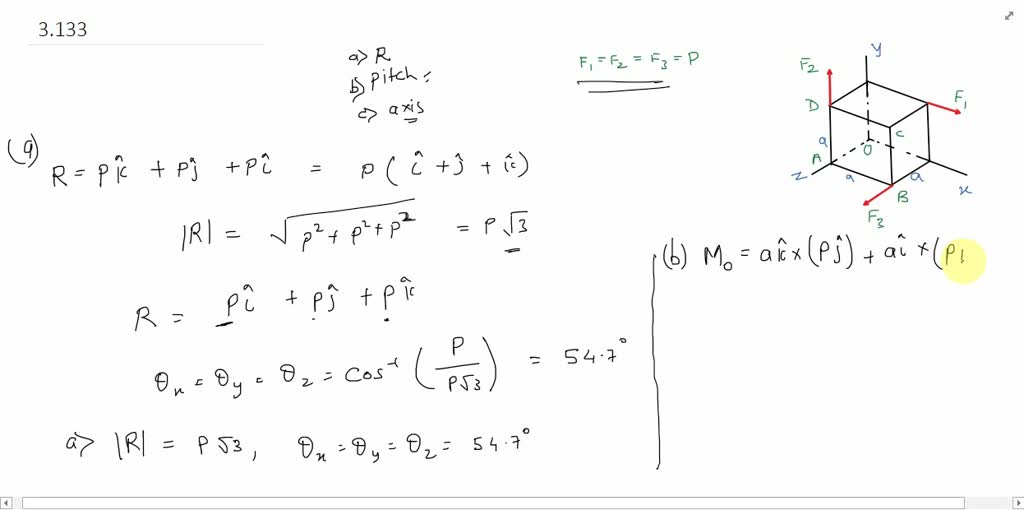 3.133
a> R
b) Pitch :
c) axis
F₁ = F₂ = F₃ = P
y
F₂
F₁
D
C
a
O
A
z
a
a
B
x
F₃
(a) R = Pk̂ + Pĵ + Pî = P ( î + ĵ + k̂ )
|R| = √(P² + P² + P²) = P√3
R = Pî + Pĵ + Pk̂
θx = θy = θz = cos⁻¹ (P / P√3) = 54.7°
a> |R| = P√3, θx = θy = θz = 54.7°
(b) M₀ = ak̂ × (Pĵ) + aî × (P